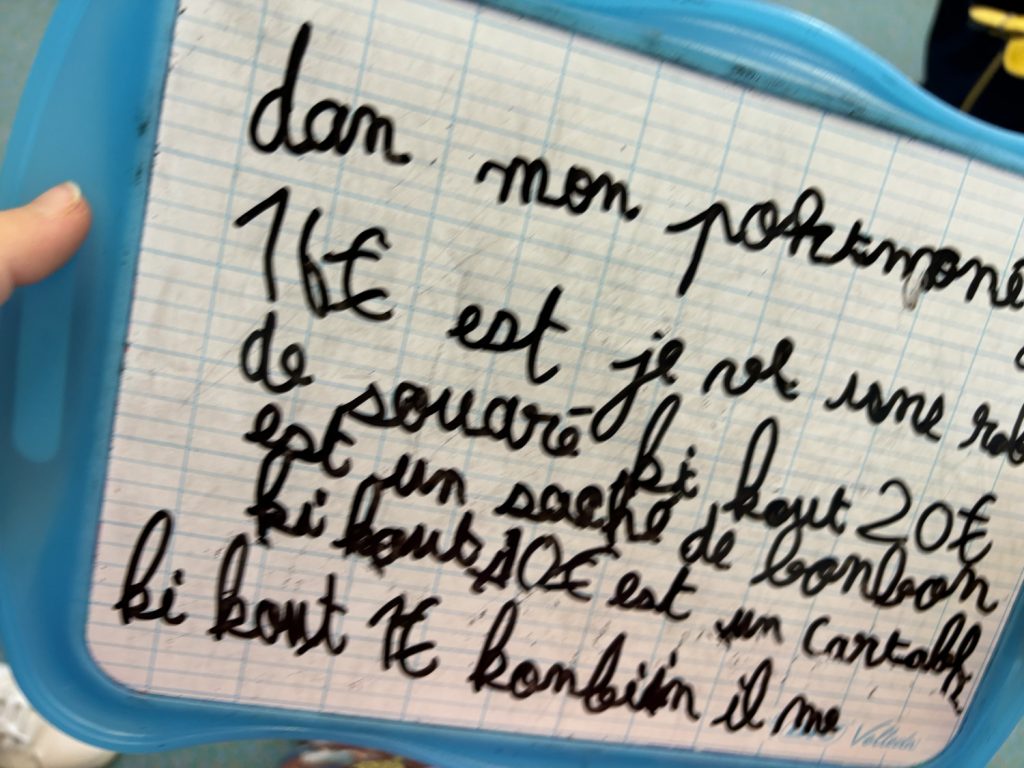 dan mon portmoné
16€ est je vé une rob
de souaré ki kout 20€
est un saché de bonbon
ki kout 10€ est un cartabl
ki kout 1€ konbiin il me
Velleda